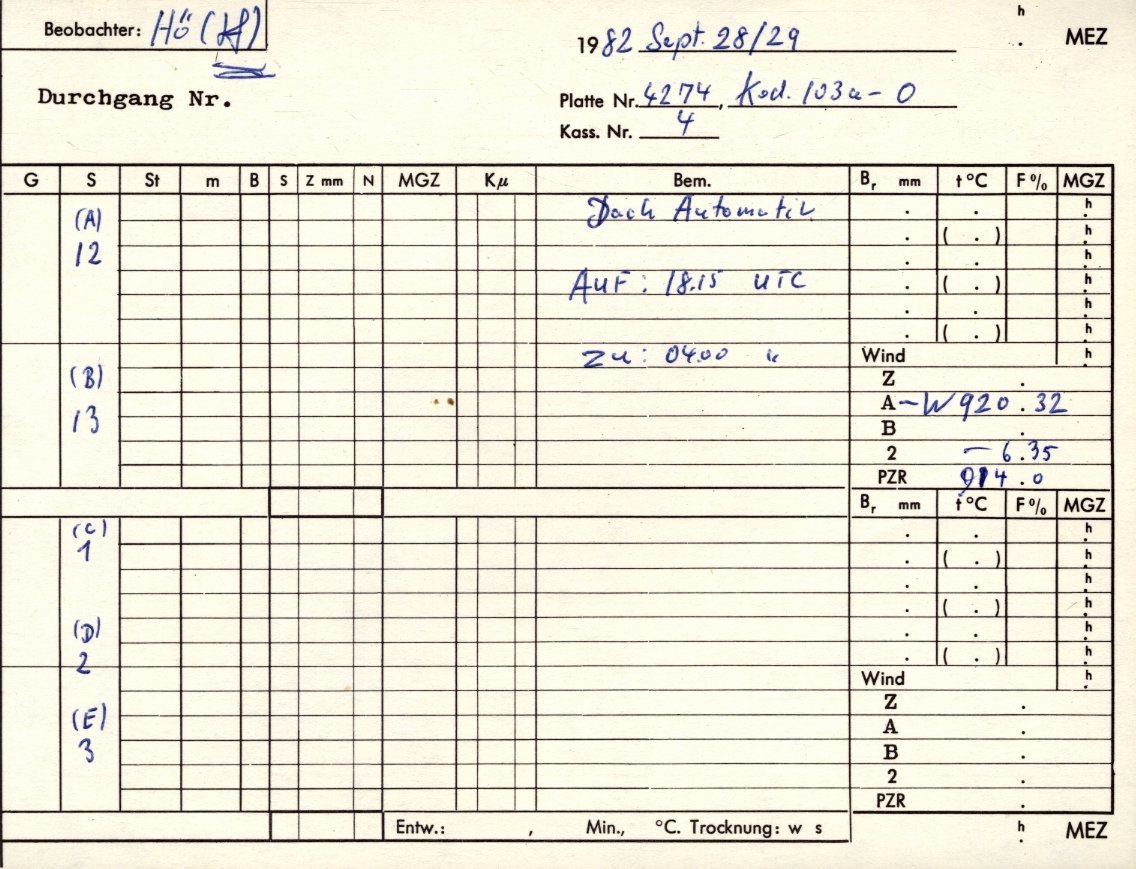 Beobachter: Hö (H) 1982 Sept. 28/29 h . MEZ
Durchgang Nr. Platte Nr. 4274, Kod. 103a-O
Kass. Nr. 4
G S St m B S Z mm N MGZ Kμ Bem. Br mm t °C F % MGZ
(A) Dach Automatik . . h
12 . ( . ) h
. . h
AUF: 18.15 UTC . ( . ) h
. . h
. ( . ) h
zu: 04.00 " Wind h
(B) Z .
13 A - W 920.32
B .
2 - 6.35
PZR 914.0
Br mm t °C F % MGZ
(C) . . h
1 . ( . ) h
. . h
. ( . ) h
(D) . . h
2 . ( . ) h
Wind h
Z .
(E) A .
3 B .
2 .
PZR .
Entw.: , Min., °C. Trocknung: w s h . MEZ